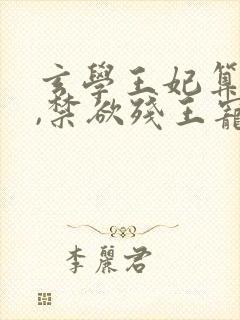 玄學王妃算
,禁欲殘王寵
李麗君